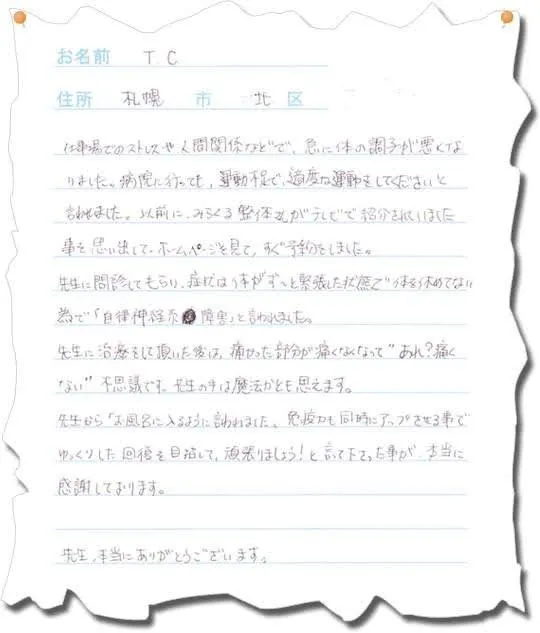 お名前 T.C
住所 札幌 市 北 区
仕事場でのストレスや人間関係などで、急に体の調子が悪くな
りました。病院に行っても、運動不足で、適度な運動をしてくださいと
言われました。以前に、みらくる整体さんがテレビで紹介されていました
事を思い出して、ホームページを見て、すぐ予約をしました。
先生に問診してもらい、症状は体がずーと緊張した状態で体を休めてない
為で「自律神経系障害」と言われました。
先生に治療をして頂いた後は、痛かった部分が痛くなくなって"あれ?痛く
ない"不思議です。先生の手は魔法かとも思えます。
先生から「お風呂に入るように言われました、免疫力も同時にアップさせる事で
ゆっくりした回復を目指して、頑張りましょう!と言って下さった事が、本当に
感謝しております。
先生、本当にありがとうございます。